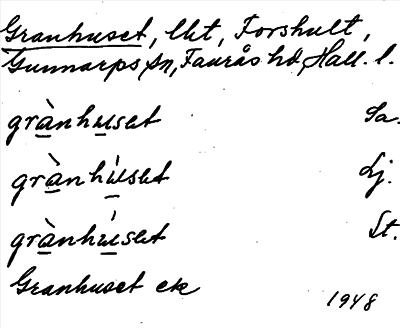 Granhuset, lht, Forshult,
Gunnarps sn, Faurås hd, Hall. l.
grànhuset Sa.
grànhùset Lj.
grànhúset St.
Granhuset ek
1948